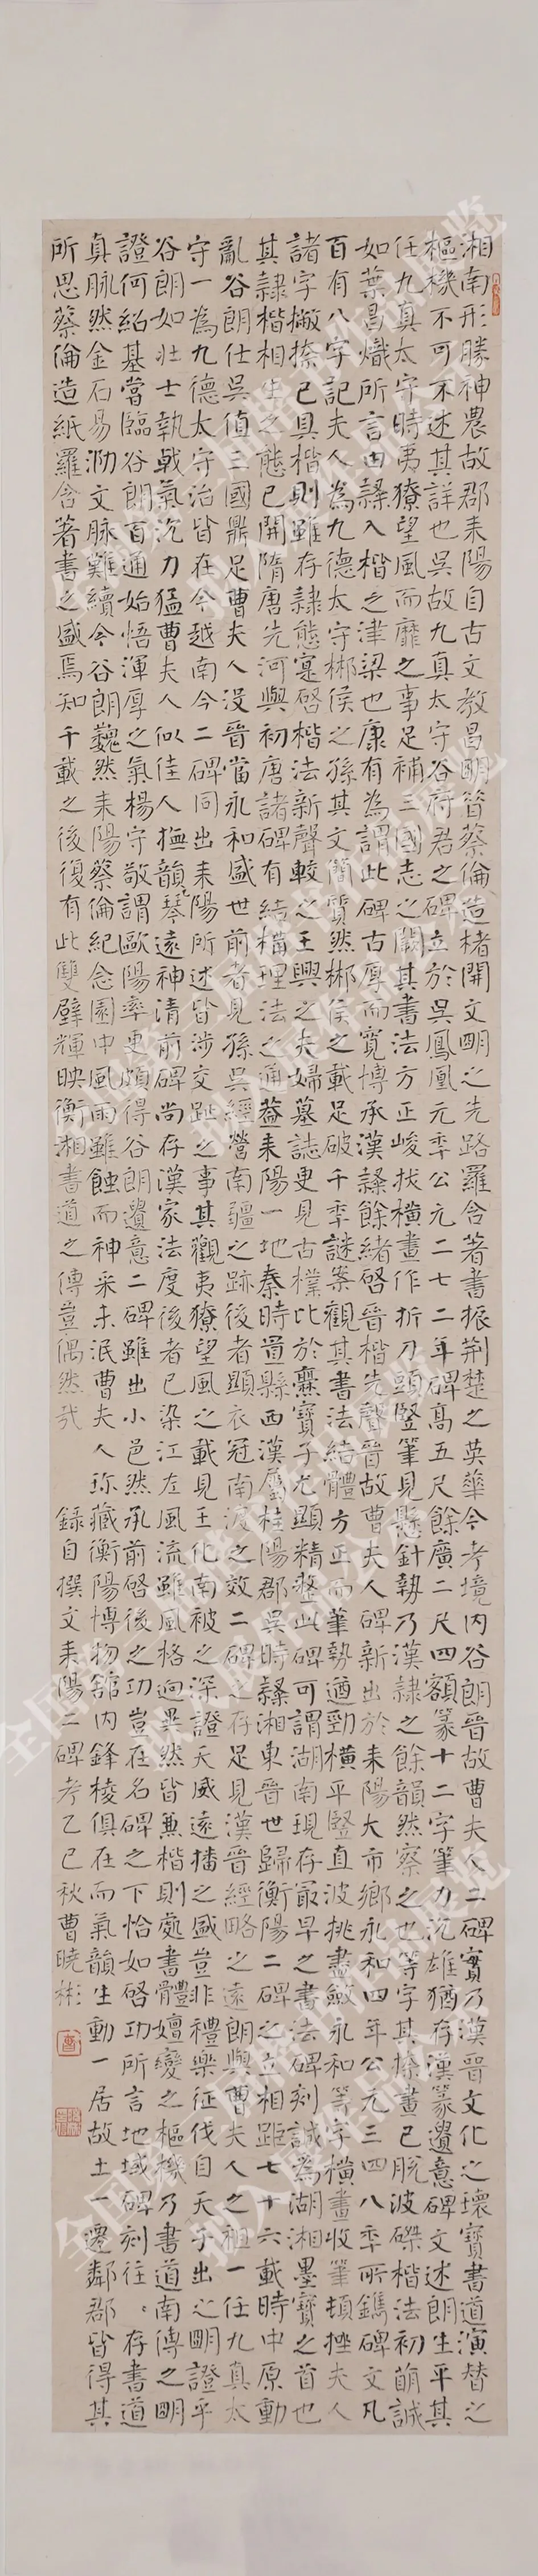 湘南形勝神農故郡耒陽自古文教昌明昔蔡倫造楮開文明之先路羅含著書振荆楚之英華今考境内谷朗晉故曹夫人二碑實乃漢晉文化之瓌寶書道演替之
樞機不可不述其詳也吳故九真太守谷府君之碑立於吳鳳凰元季公元二七二年碑高五尺餘廣二尺四額篆十二字筆力沉雄猶存漢篆遺意碑文述朗生平其
任九真太守時夷獠望風而靡之事足補三國志之闕其書法方正峻拔橫畫作折刀頭豎筆見懸針勢乃漢隸之餘韻然察之也等字其捺畫已脱波磔楷法初萌誠
如葉昌熾所言由隸入楷之津梁也康有為謂此碑古厚而寬博承漢隸餘緒啓晉楷先聲晉故曹夫人碑新出於耒陽大市鄉永和四年公元三四八季所鐫碑文凡
百有八字記夫人為九德太守郴侯之孫其文簡質然郴侯之載足破千季謎案觀其書法結體方正而筆執遒勁橫平豎直波挑盡斂永和等字橫畫收筆頓挫夫人
諸字撇捺已具楷則雖存隸態寔啓楷法新聲較之王興之夫婦墓誌更見古樸比於爨寶子尤顯精整此碑可謂湖南現存最早之書法碑刻誠為湖湘墨寶之首也
其隸楷相生之態已開隋唐先河與初唐諸碑有結構理法之通蓋耒陽一地秦時置縣西漢屬桂陽郡吳時隸湘東晉世歸衡陽二碑之立相距七十六載時中原動
亂谷朗仕吳值三國鼎足曹夫人没晉當永和盛世前者見孫吳經營南疆之跡後者顯衣冠南渡之效二碑之存足見漢晉經略之遠朗與曹夫人之祖一任九真太
守一為九德太守治皆在今越南今二碑同出耒陽所述皆涉交趾之事其觀夷獠望風之載見王化南被之深證天威遠播之盛豈非禮樂征伐自天子出之明證乎
谷朗如壯士執戟氣沉力猛曹夫人似佳人撫琴韻遠神清前碑尚存漢家法度後者已染江左風流雖風格迥異然皆兼楷則處書體嬗變之樞機乃書道南傳之明
證何紹基嘗臨谷朗百通始悟渾厚之氣楊守敬謂歐陽率更頗得谷朗遺意二碑雖出小邑然承前啓後之功豈在名碑之下恰如啓功所言地域碑刻往往存書道
真脉然金石易泐文脉難續今谷朗巍然耒陽蔡倫紀念園中風雨雖蝕而神采未泯曹夫人珍藏衡陽博物館内鋒棱俱在而氣韻生動一居故土一遷鄰郡皆得其
所思蔡倫造紙羅含著書之盛焉知千載之後復有此雙璧輝映衡湘書道之傳豈偶然哉 録自撰文耒陽二碑考乙巳秋曹曉彬